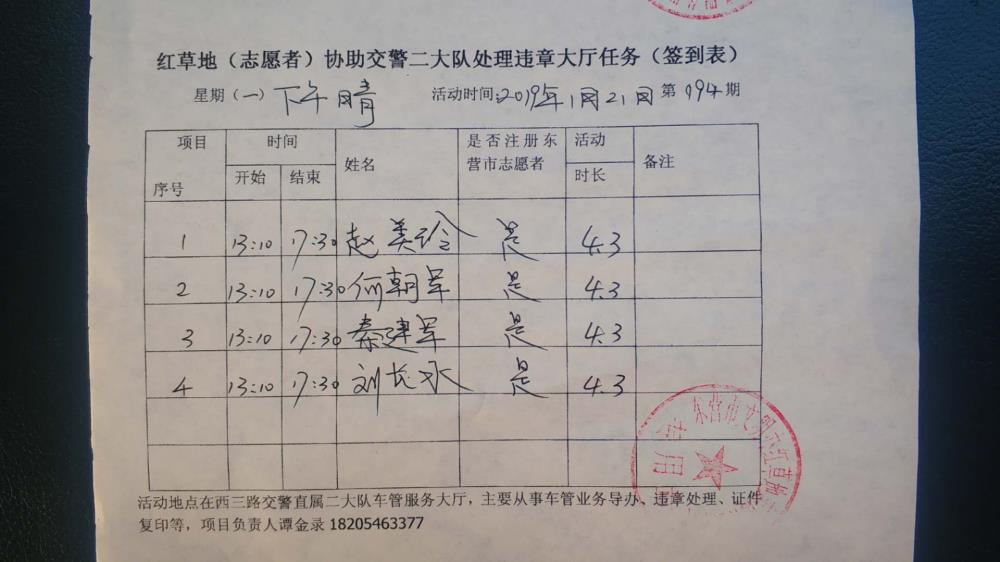 红草地（志愿者）协助交警二大队处理违章大厅任务（签到表）
星期（一）下午 晴 活动时间:2019年1月21日 第194期
项目 时间 姓名 是否注册东营市志愿者 活动时长 备注
序号 开始 结束
1 13:10 17:30 赵美玲 是 4.3
2 13:10 17:30 何朝军 是 4.3
3 13:10 17:30 秦建军 是 4.3
4 13:10 17:30 刘长水 是 4.3
活动地点在西三路交警直属二大队车管服务大厅，主要从事车管业务导办、违章处理、证件
复印等，项目负责人谭金录 18205463377